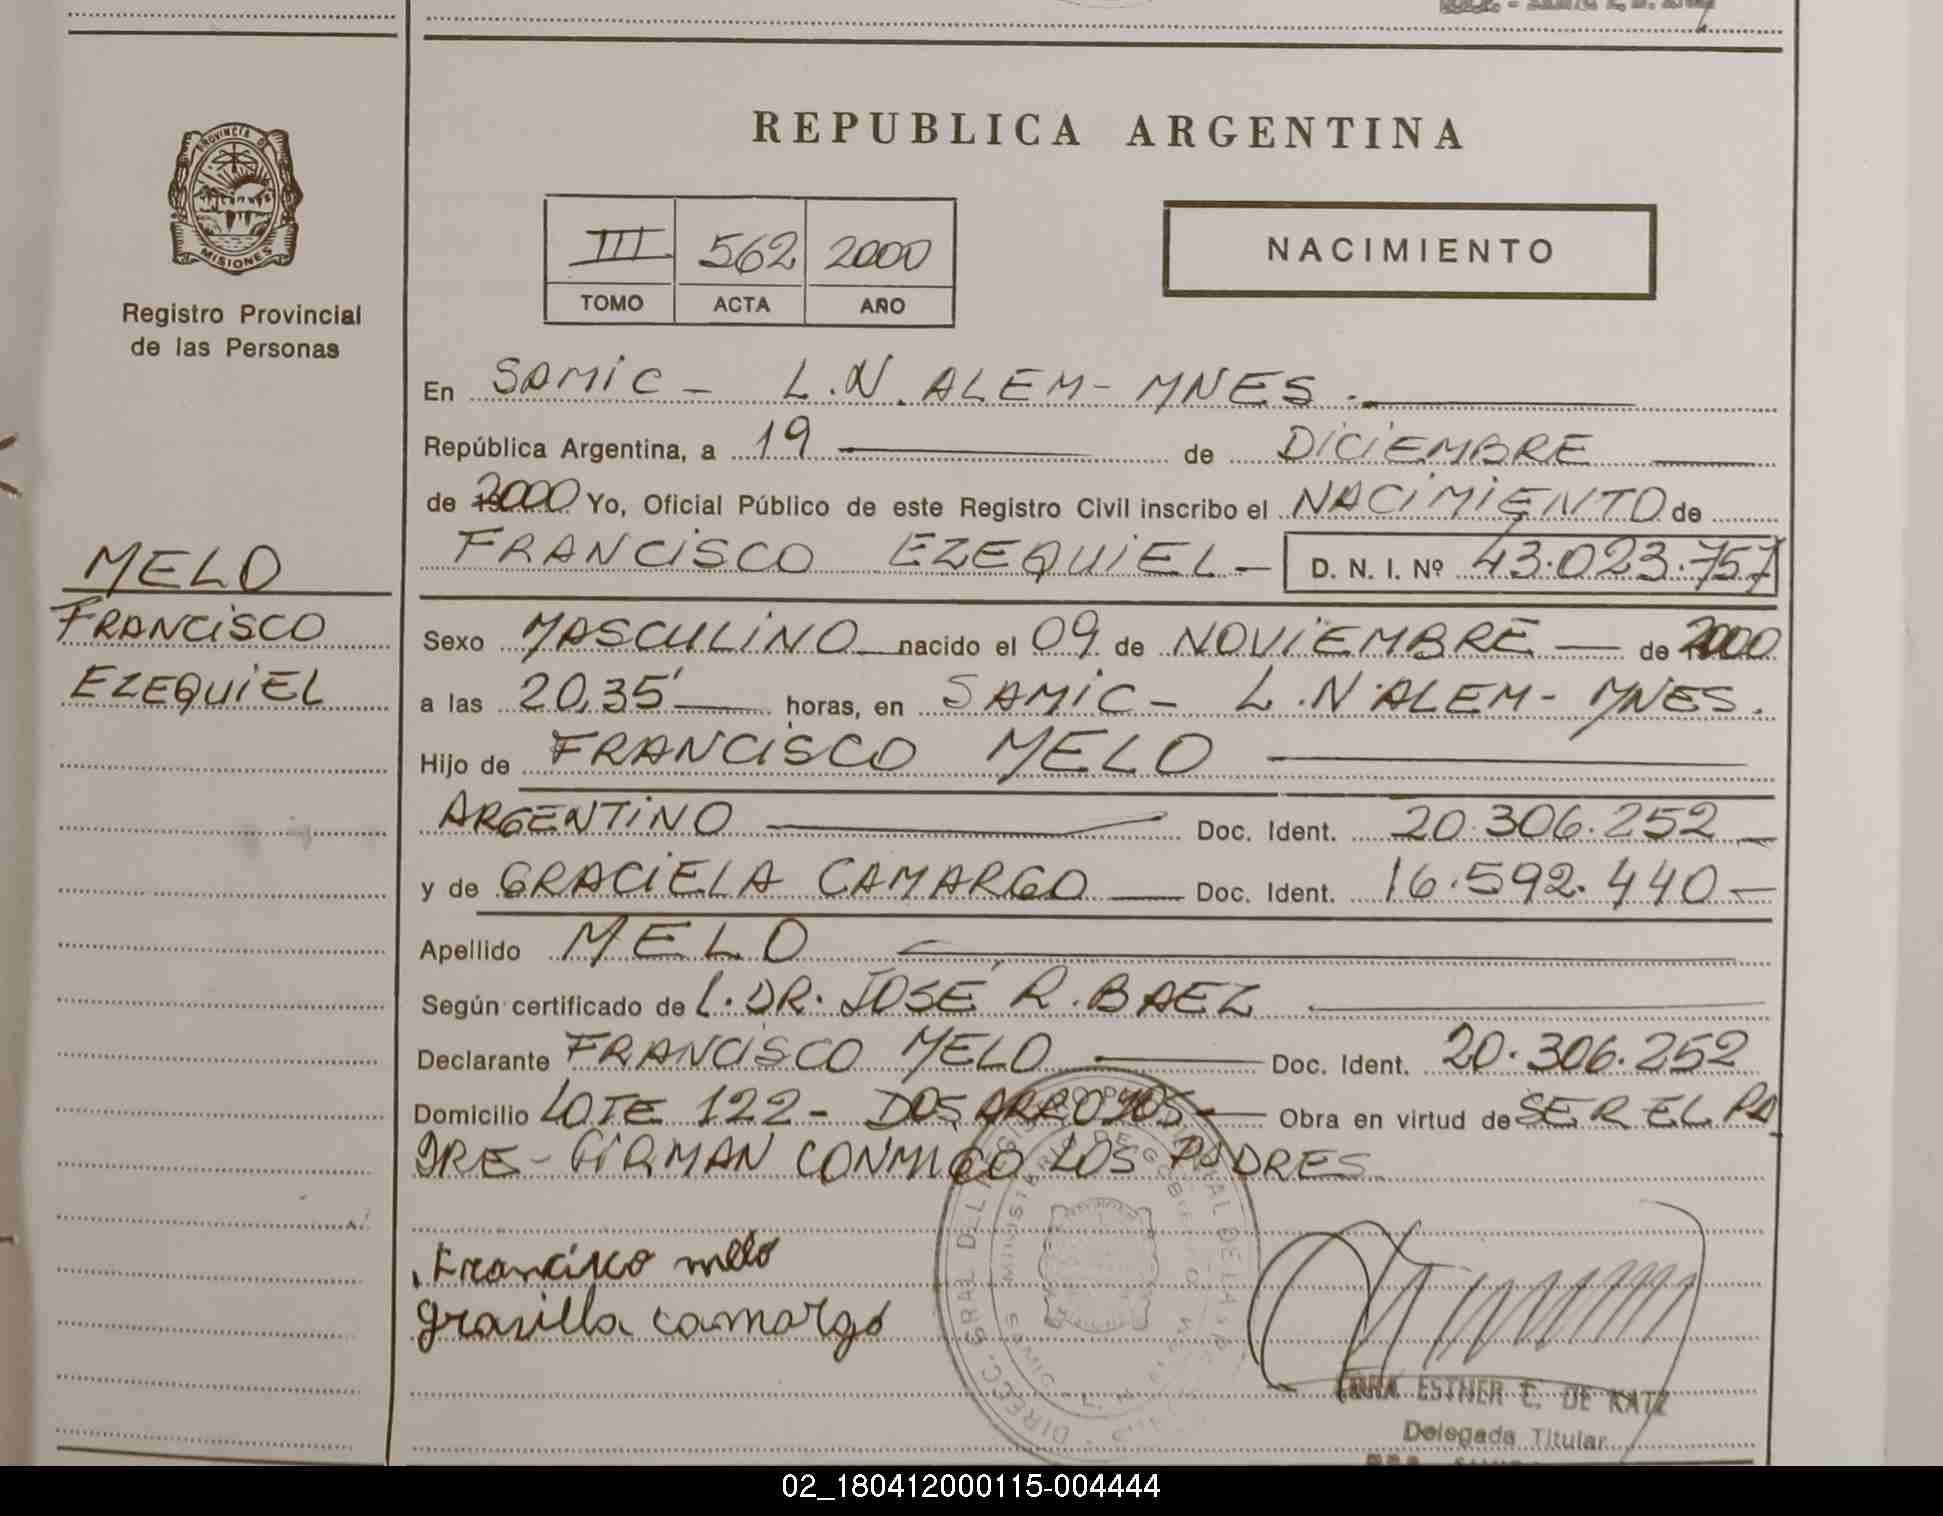 REPUBLICA ARGENTINA
PROVINCIA DE
MISIONES
Registro Provincial
de las Personas
III 562 2000
TOMO ACTA AÑO
NACIMIENTO
En SAMIC - L.N. ALEM - MNES.
República Argentina, a 19 de DICIEMBRE
de 2000 Yo, Oficial Público de este Registro Civil inscribo el NACIMIENTO de
FRANCISCO EZEQUIEL - D. N. I. Nº 43.023.757
MELO
FRANCISCO
EZEQUIEL
Sexo MASCULINO nacido el 09 de NOVIEMBRE de 2000
a las 20,35' horas, en SAMIC - L.N. ALEM - MNES.
Hijo de FRANCISCO MELO
ARGENTINO Doc. Ident. 20.306.252
y de GRACIELA CAMARGO Doc. Ident. 16.592.440
Apellido MELO
Según certificado de L. DR. JOSÉ R. BAEZ
Declarante FRANCISCO MELO Doc. Ident. 20.306.252
Domicilio LOTE 122 - DOS ARROYOS Obra en virtud de SER EL PA
DRE - FIRMAN CONMIGO LOS PADRES
Francisco melo
camargo
ESTHER C. DE KATZ
Delegada Titular
02_180412000115-004444